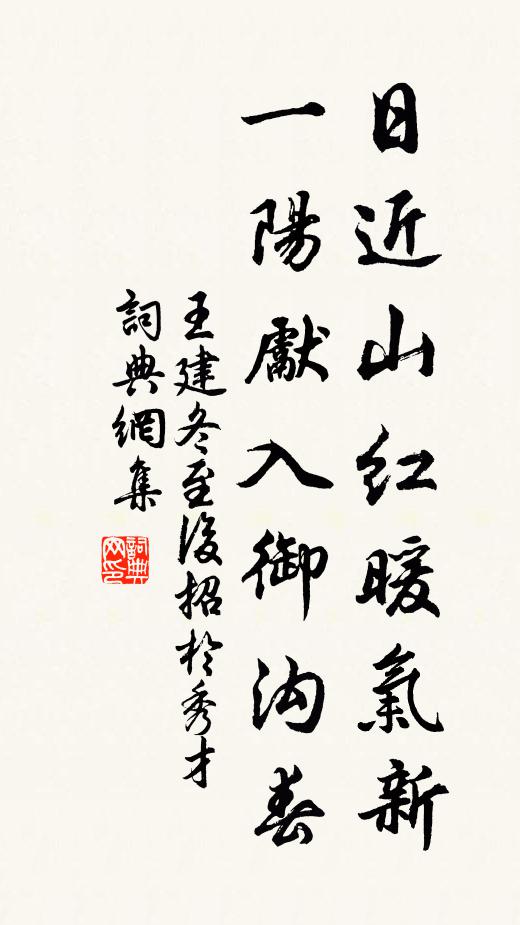 日近山红暖氣新
一陽獻入御沟春
王建冬至後招於秀才
詞典網集
詞典网印